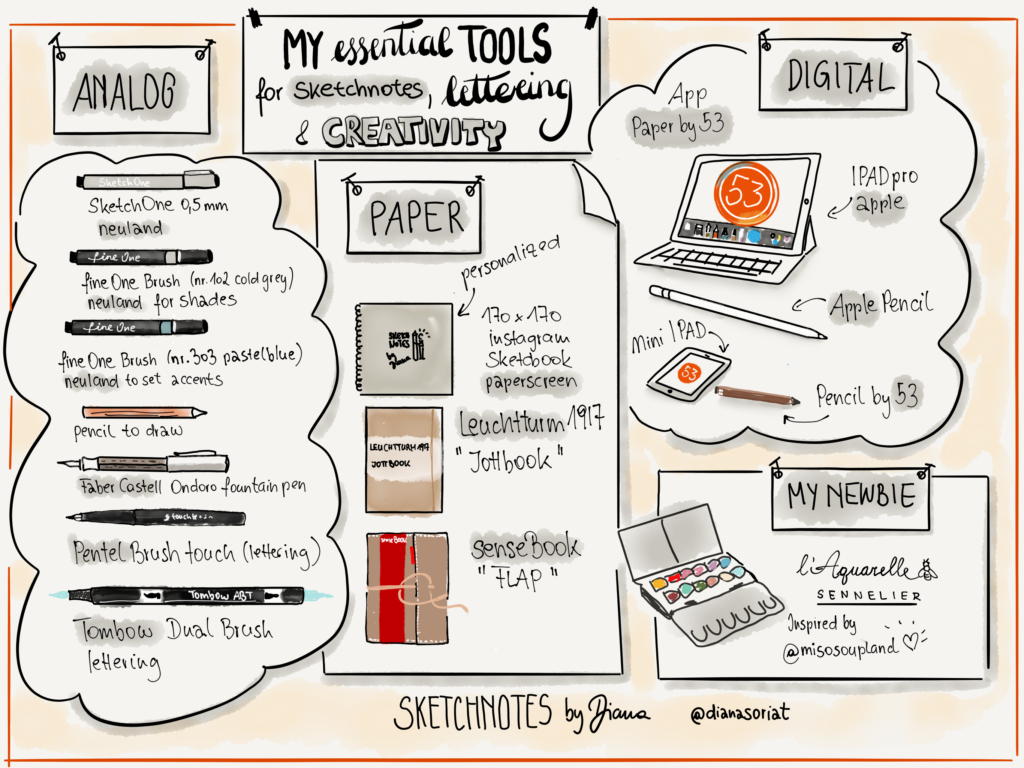 MY essential TOOLS
for Sketchnotes, lettering
& CREATIVITY
ANALOG
SketchOne
SketchOne 0,5mm
neuland
fine One
fine One Brush (nr.102 cold grey)
neuland for shades
fine One
fine One Brush (nr.303 pastelblue)
neuland to set accents
Pencil to draw
Faber Castell Ondoro fountain pen
touch
Pentel Brush touch (lettering)
Tombow ABT
Tombow Dual Brush
lettering
PAPER
personalized
SKETCH
NOTES
by Diana
170 x 170
instagram
Sketbook
paperscreen
LEUCHTTURM 1917
JOTTBOOK
Leuchtturm 1917
"Jottbook"
senseBook
senseBook
"FLAP"
DIGITAL
App
Paper by 53
53
IPAD pro
apple
Apple Pencil
Mini IPAD
53
Pencil by 53
MY NEWBIE
l'Aquarelle
SENNELIER
Inspired by
@misosoupland
SKETCHNOTES by Diana @dianasoriat